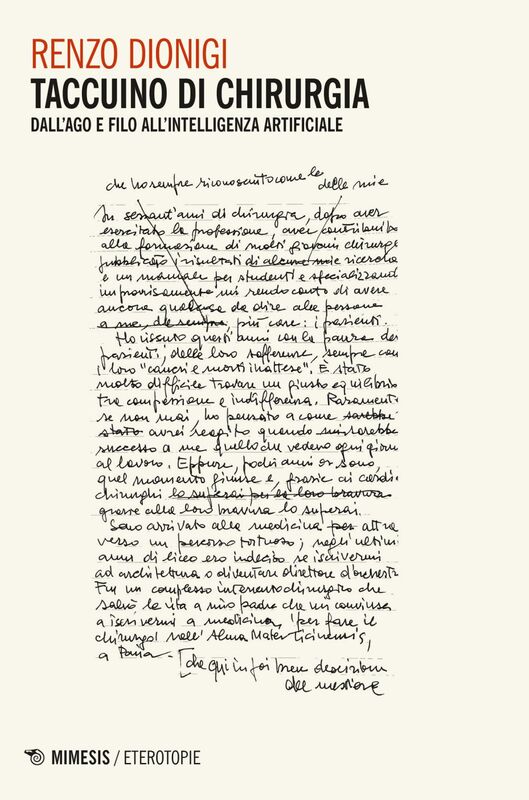 RENZO DIONIGI
TACCUINO DI CHIRURGIA
DALL'AGO E FILO ALL'INTELLIGENZA ARTIFICIALE
che ho sempre riconosciuto come le delle mie
In sessant'anni di chirurgia, dopo aver
esercitato la professione, aver contribuito
alla formazione di molti giovani chirurghi
pubblicato i risultati di alcune mie ricerche
e un manuale per studenti e specializzandi
improvvisamente mi rendo conto di avere
ancora qualcosa da dire alle persone
a me, da sempre, più care: i pazienti.
Ho vissuto questi anni con la paura dei
pazienti, delle loro sofferenze, sempre con
i loro "cancri e morti inattese". È stato
molto difficile trovare un giusto equilibrio
tra compassione e indifferenza. Raramente
se non mai, ho pensato a come sarebbe
stato avrei reagito quando sarebbe
successo a me quello che vedevo ogni giorno
al lavoro. Eppure, pochi anni or sono,
quel momento giunse e, grazie ai cardio
chirurghi lo superai per la loro bravura
grazie alla loro bravura lo superai.
Sono arrivato alla medicina per attra
verso un percorso tortuoso; negli ultimi
anni di liceo ero indeciso se iscrivermi
ad architettura o diventare direttore d'orchestra
Fu un complesso intervento chirurgico che
salvò la vita a mio padre che mi convinse
a iscrivermi a medicina, "per fare il
chirurgo" nell'Alma Mater Ticinensis,
a Pavia.
[che qui in poi
del mestiere
MIMESIS / ETEROTOPIE